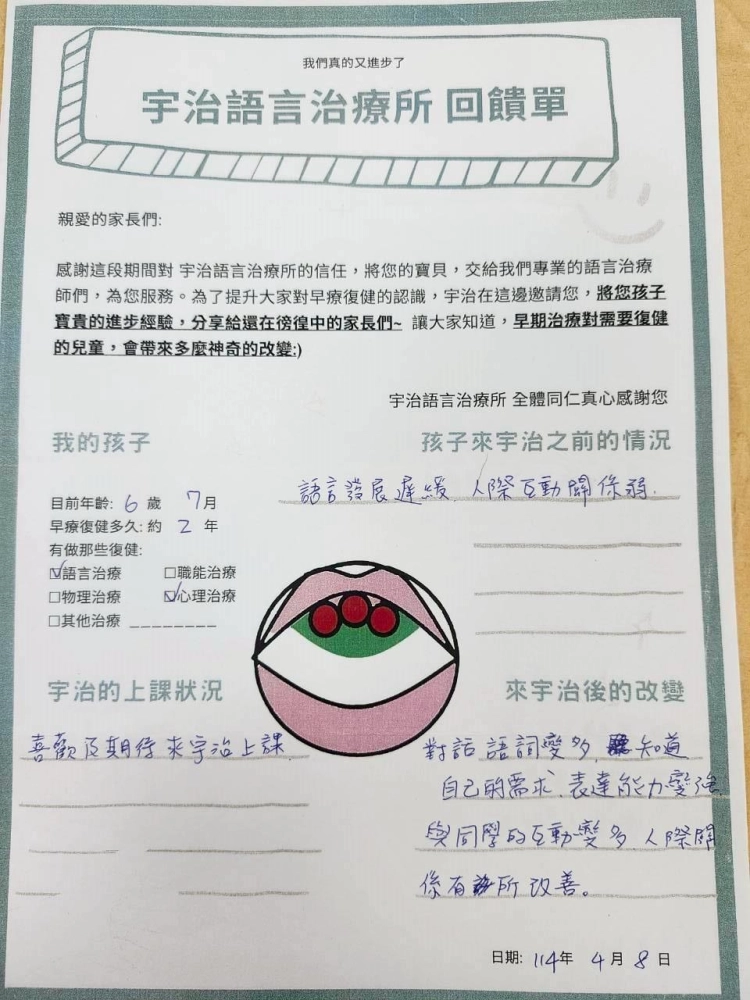 我們真的又進步了
宇治語言治療所 回饋單
親愛的家長們:
感謝這段期間對 宇治語言治療所的信任，將您的寶貝，交給我們專業的語言治療
師們，為您服務。為了提升大家對早療復健的認識，宇治在這邊邀請您，將您孩子
寶貴的進步經驗，分享給還在徬徨中的家長們~ 讓大家知道，早期治療對需要復健
的兒童，會帶來多麼神奇的改變:)
宇治語言治療所 全體同仁真心感謝您
我的孩子
目前年齡: 6 歲 7月
早療復健多久: 約 2 年
有做那些復健:
☑語言治療 □職能治療
□物理治療 ☑心理治療
□其他治療 ________
孩子來宇治之前的情況
語言發展遲緩、人際互動關係弱.
宇治的上課狀況
喜歡及期待來宇治上課.
來宇治後的改變
對話語詞變多、知道
自己的需求、表達能力變強
與同學的互動變多、人際關
係有所改善。
日期: 114年 4月 8日